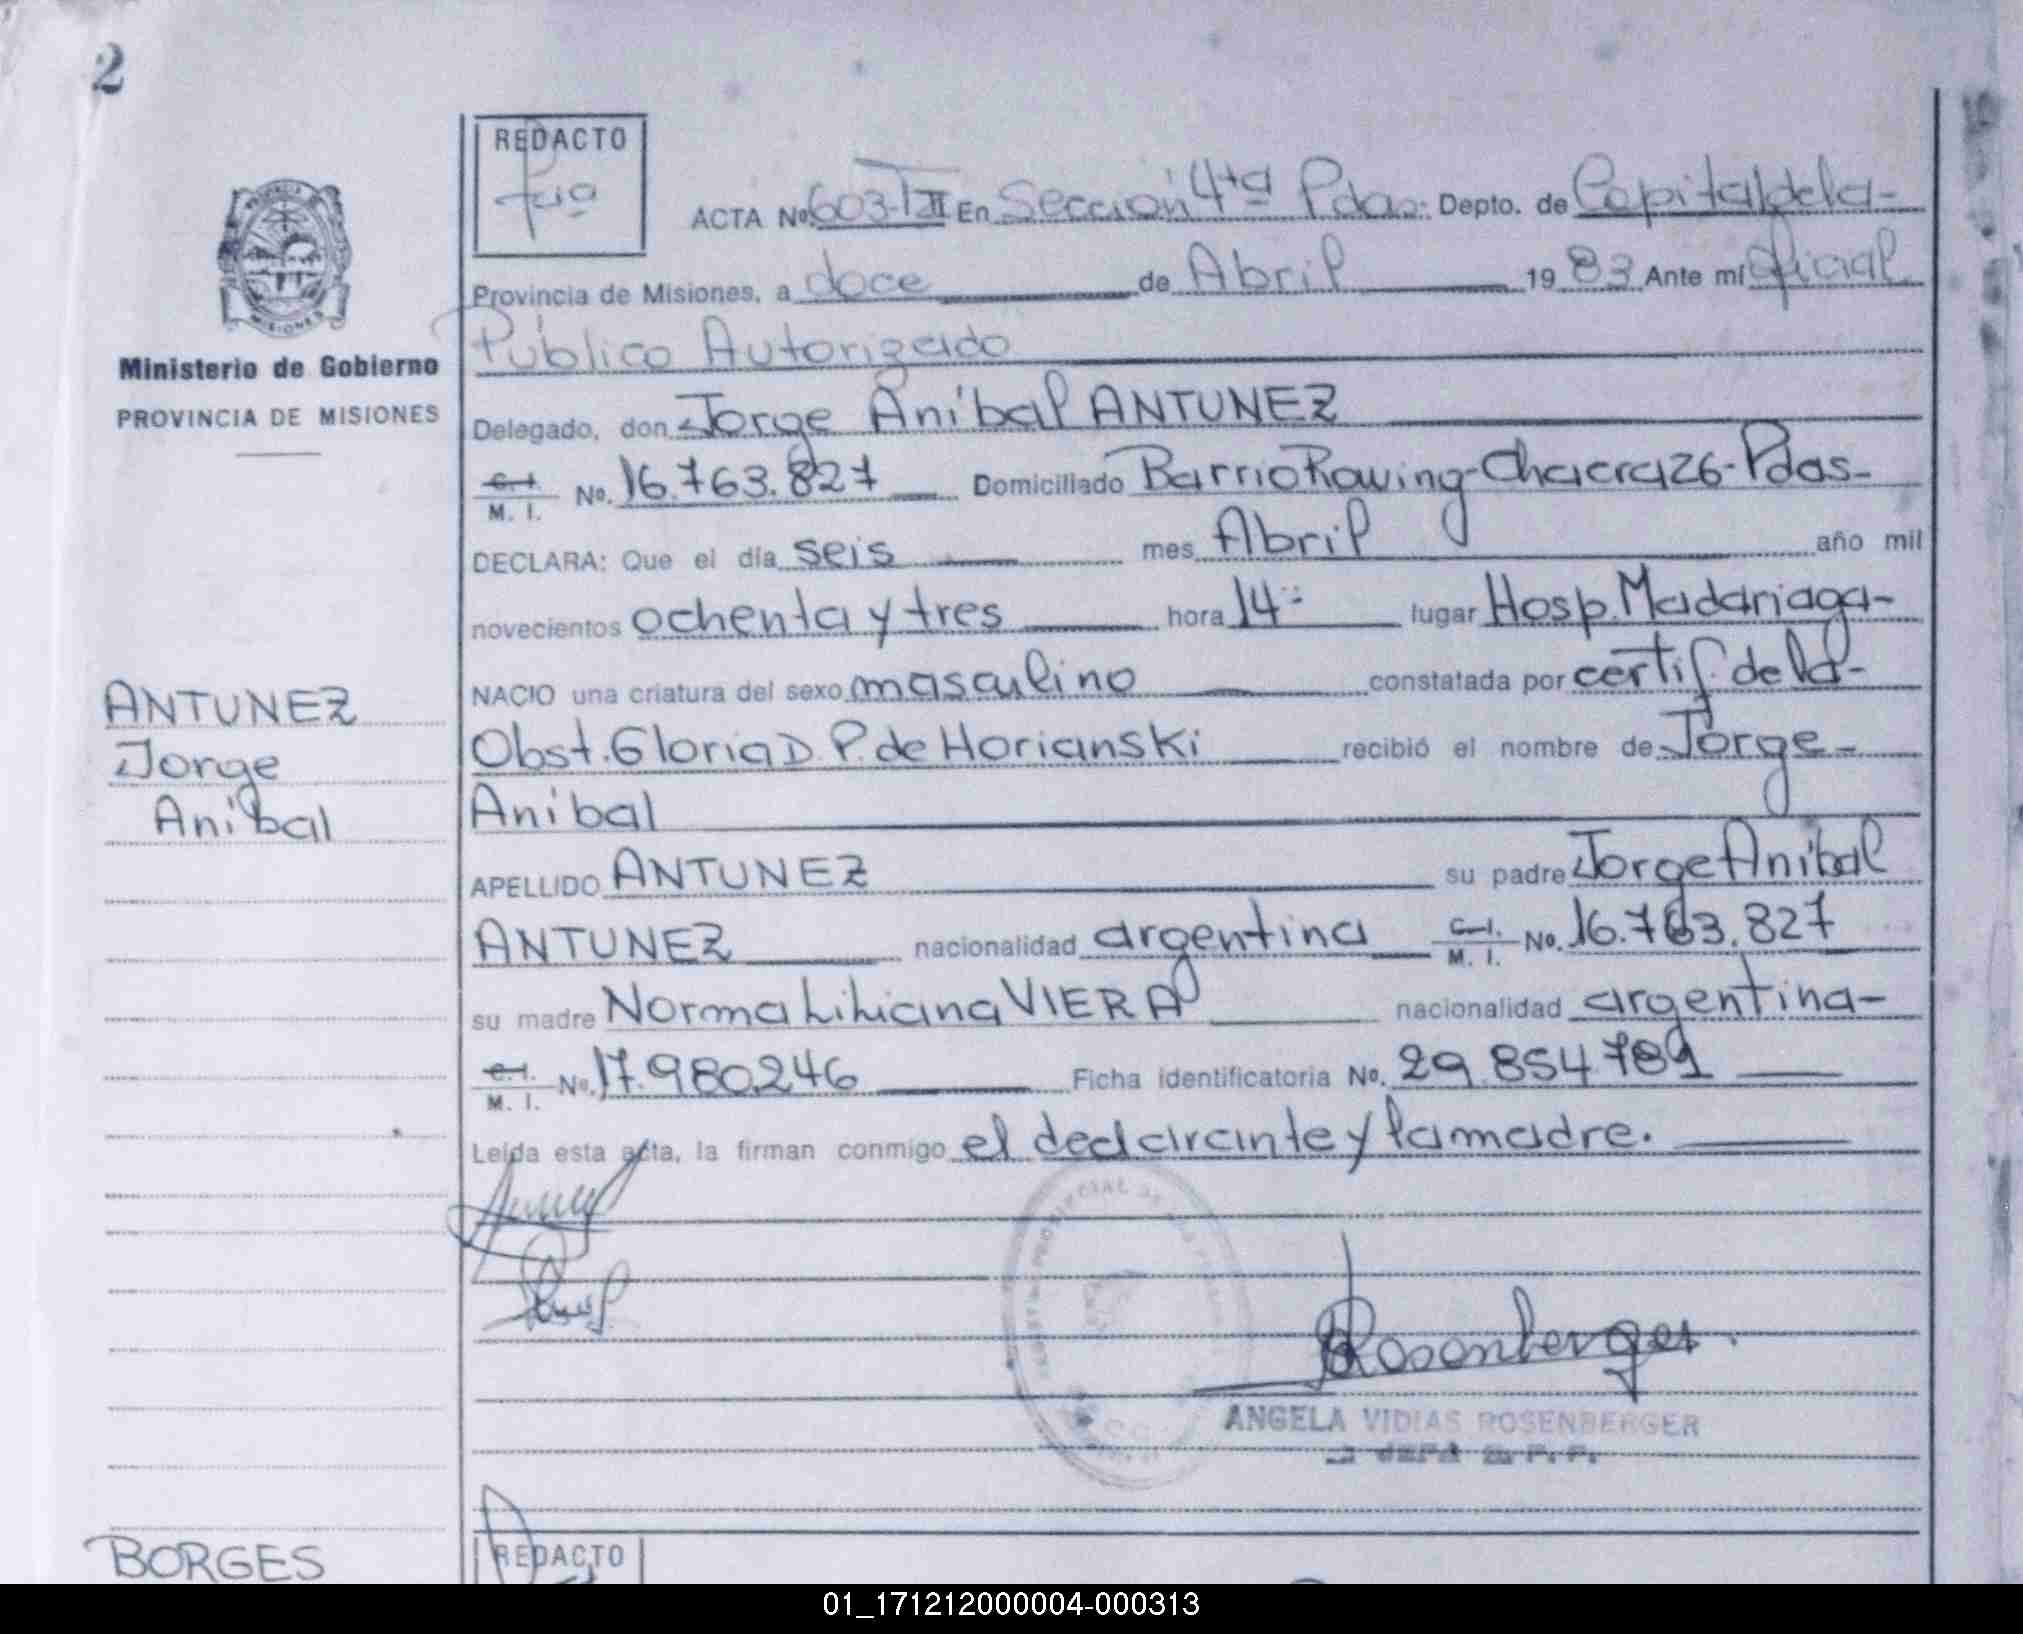 2
REDACTO
ACTA No. 603-T II En Sección 4ta Pdas. Depto. de Capital de la-
Provincia de Misiones, a doce de Abril 1983 Ante mí Oficial
Público Autorizado
Ministerio de Gobierno
PROVINCIA DE MISIONES
Delegado, don Jorge Aníbal ANTUNEZ
C. I. M. I. No. 16.763.827 Domiciliado Barrio Rowing-Chacra 26-Pdas-
DECLARA: Que el día seis mes Abril año mil
novecientos ochenta y tres hora 14:- lugar Hosp. Madariaga-
NACIO una criatura del sexo masculino constatada por certif. de la-
Obst. Gloria D. P. de Horianski recibió el nombre de Jorge-
Aníbal
ANTUNEZ
Jorge
Aníbal
APELLIDO ANTUNEZ su padre Jorge Aníbal
ANTUNEZ nacionalidad argentina C. I. M. I. No. 16.763.827
su madre Norma Liliana VIERA nacionalidad argentina-
C. I. M. I. No. 17.980.246 Ficha identificatoria No. 29.854.789
Leída esta acta, la firman conmigo el declarante y la madre.
Rosenberger
ANGELA VIDIAS ROSENBERGER
BORGES
REDACTO
01_171212000004-000313